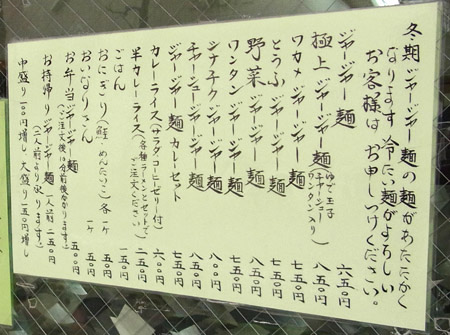 冬期ジャージャー麺の麺があたたかく
なります 冷たい麺がよろしい
お客様は お申しつけください。
ジャージャー麺 六五〇円
極上ジャージャー麺(ゆで玉子 チャーシュー ワンタン入り) 八五〇円
ワカメジャージャー麺 七五〇円
とうふジャージャー麺 七五〇円
野菜ジャージャー麺 八五〇円
ワンタンジャージャー麺 七五〇円
シナチクジャージャー麺 八〇〇円
チャーシュージャージャー麺 八五〇円
ジャージャー麺カレーセット 七五〇円
カレーライス(サラダ・コーヒーゼリー付) 六〇〇円
半カレーライス(各種ラーメンとセットでご注文ください) 二五〇円
ごはん 一五〇円
おにぎり(鮭・めんたいこ)各一ヶ 五〇円
おいなりさん 一ヶ 五〇円
お弁当ジャージャー麺 五〇〇円
(ご注文後10分前後かかります)
お持帰りジャージャー麺一人前 二五〇円
(二人前より承ります)
中盛り一〇〇円増し 大盛り一五〇円増し